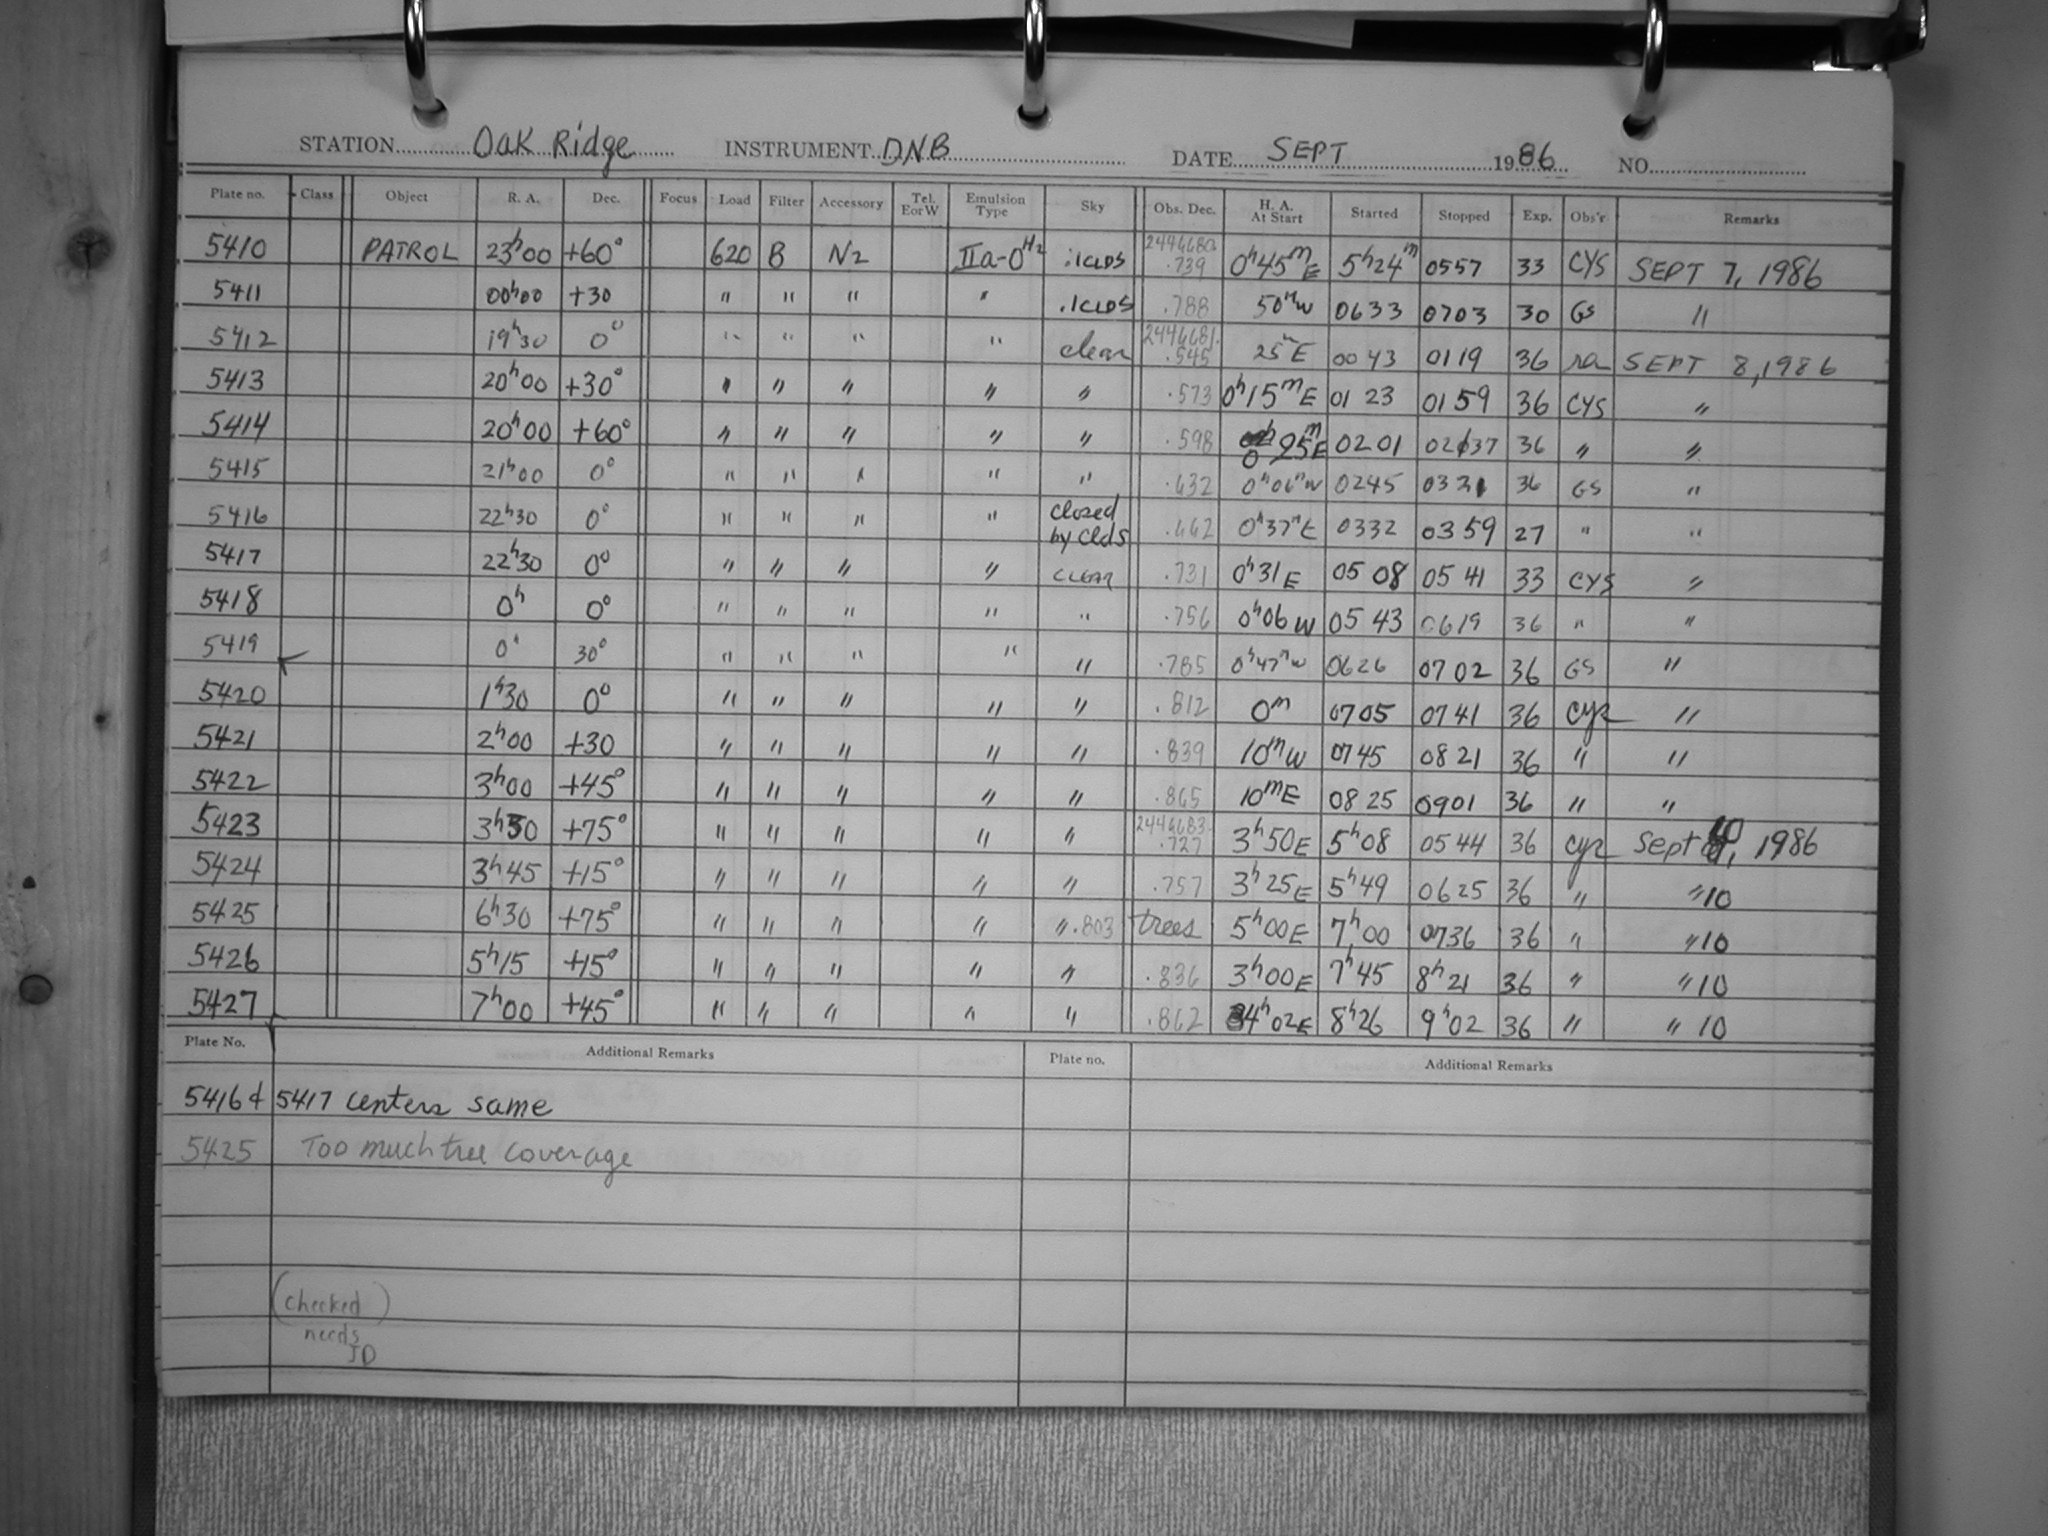 STATION Oak Ridge INSTRUMENT DNB DATE SEPT 1986 NO.
Plate no. Class Object R. A. Dec. Focus Load Filter Accessory Tel. EorW Emulsion Type Sky Obs. Dec. H. A. At Start Started Stopped Exp. Obs'r Remarks
5410 PATROL 23h00 +60° 620 B N2 IIa-O H2 .1CLDS 2446680.739 0h45mE 5h24m 0557 33 CYS SEPT 7, 1986
5411 00h00 +30 " " " " .1CLDS .788 50mW 0633 0703 30 GS "
5412 19h30 0° " " " " clear 2446681.545 25mE 0043 0119 36 SEPT 8, 1986
5413 20h00 +30° " " " " " .573 0h15mE 0123 0159 36 CYS "
5414 20h00 +60° " " " " " .598 0 25mE 0201 0237 36 " "
5415 21h00 0° " " " " " .632 0h06mW 0245 0321 36 GS "
5416 22h30 0° " " " " closed by clds .662 0h37mE 0332 0359 27 " "
5417 22h30 0° " " " " CLEAR .731 0h31E 0508 0541 33 CYS "
5418 0h 0° " " " " " .756 0h06W 0543 0619 36 " "
5419 0h 30° " " " " " .785 0h47mW 0626 0702 36 GS "
5420 1h30 0° " " " " " .812 0m 0705 0741 36 cyr "
5421 2h00 +30 " " " " " .839 10mW 0745 0821 36 " "
5422 3h00 +45° " " " " " .865 10mE 0825 0901 36 " "
5423 3h30 +75° " " " " " 2446683.727 3h50E 5h08 0544 36 cyr Sept 10, 1986
5424 3h45 +15° " " " " " .757 3h25E 5h49 0625 36 " "10
5425 6h30 +75° " " " " " .803 trees 5h00E 7h00 0736 36 " "10
5426 5h15 +15° " " " " " .836 3h00E 7h45 8h21 36 " "10
5427 7h00 +45° " " " " " .862 4h02E 8h26 9h02 36 " "10
Plate No. Additional Remarks Plate no. Additional Remarks
5416 & 5417 centers same
5425 Too much tree coverage
(checked)
needs
JD